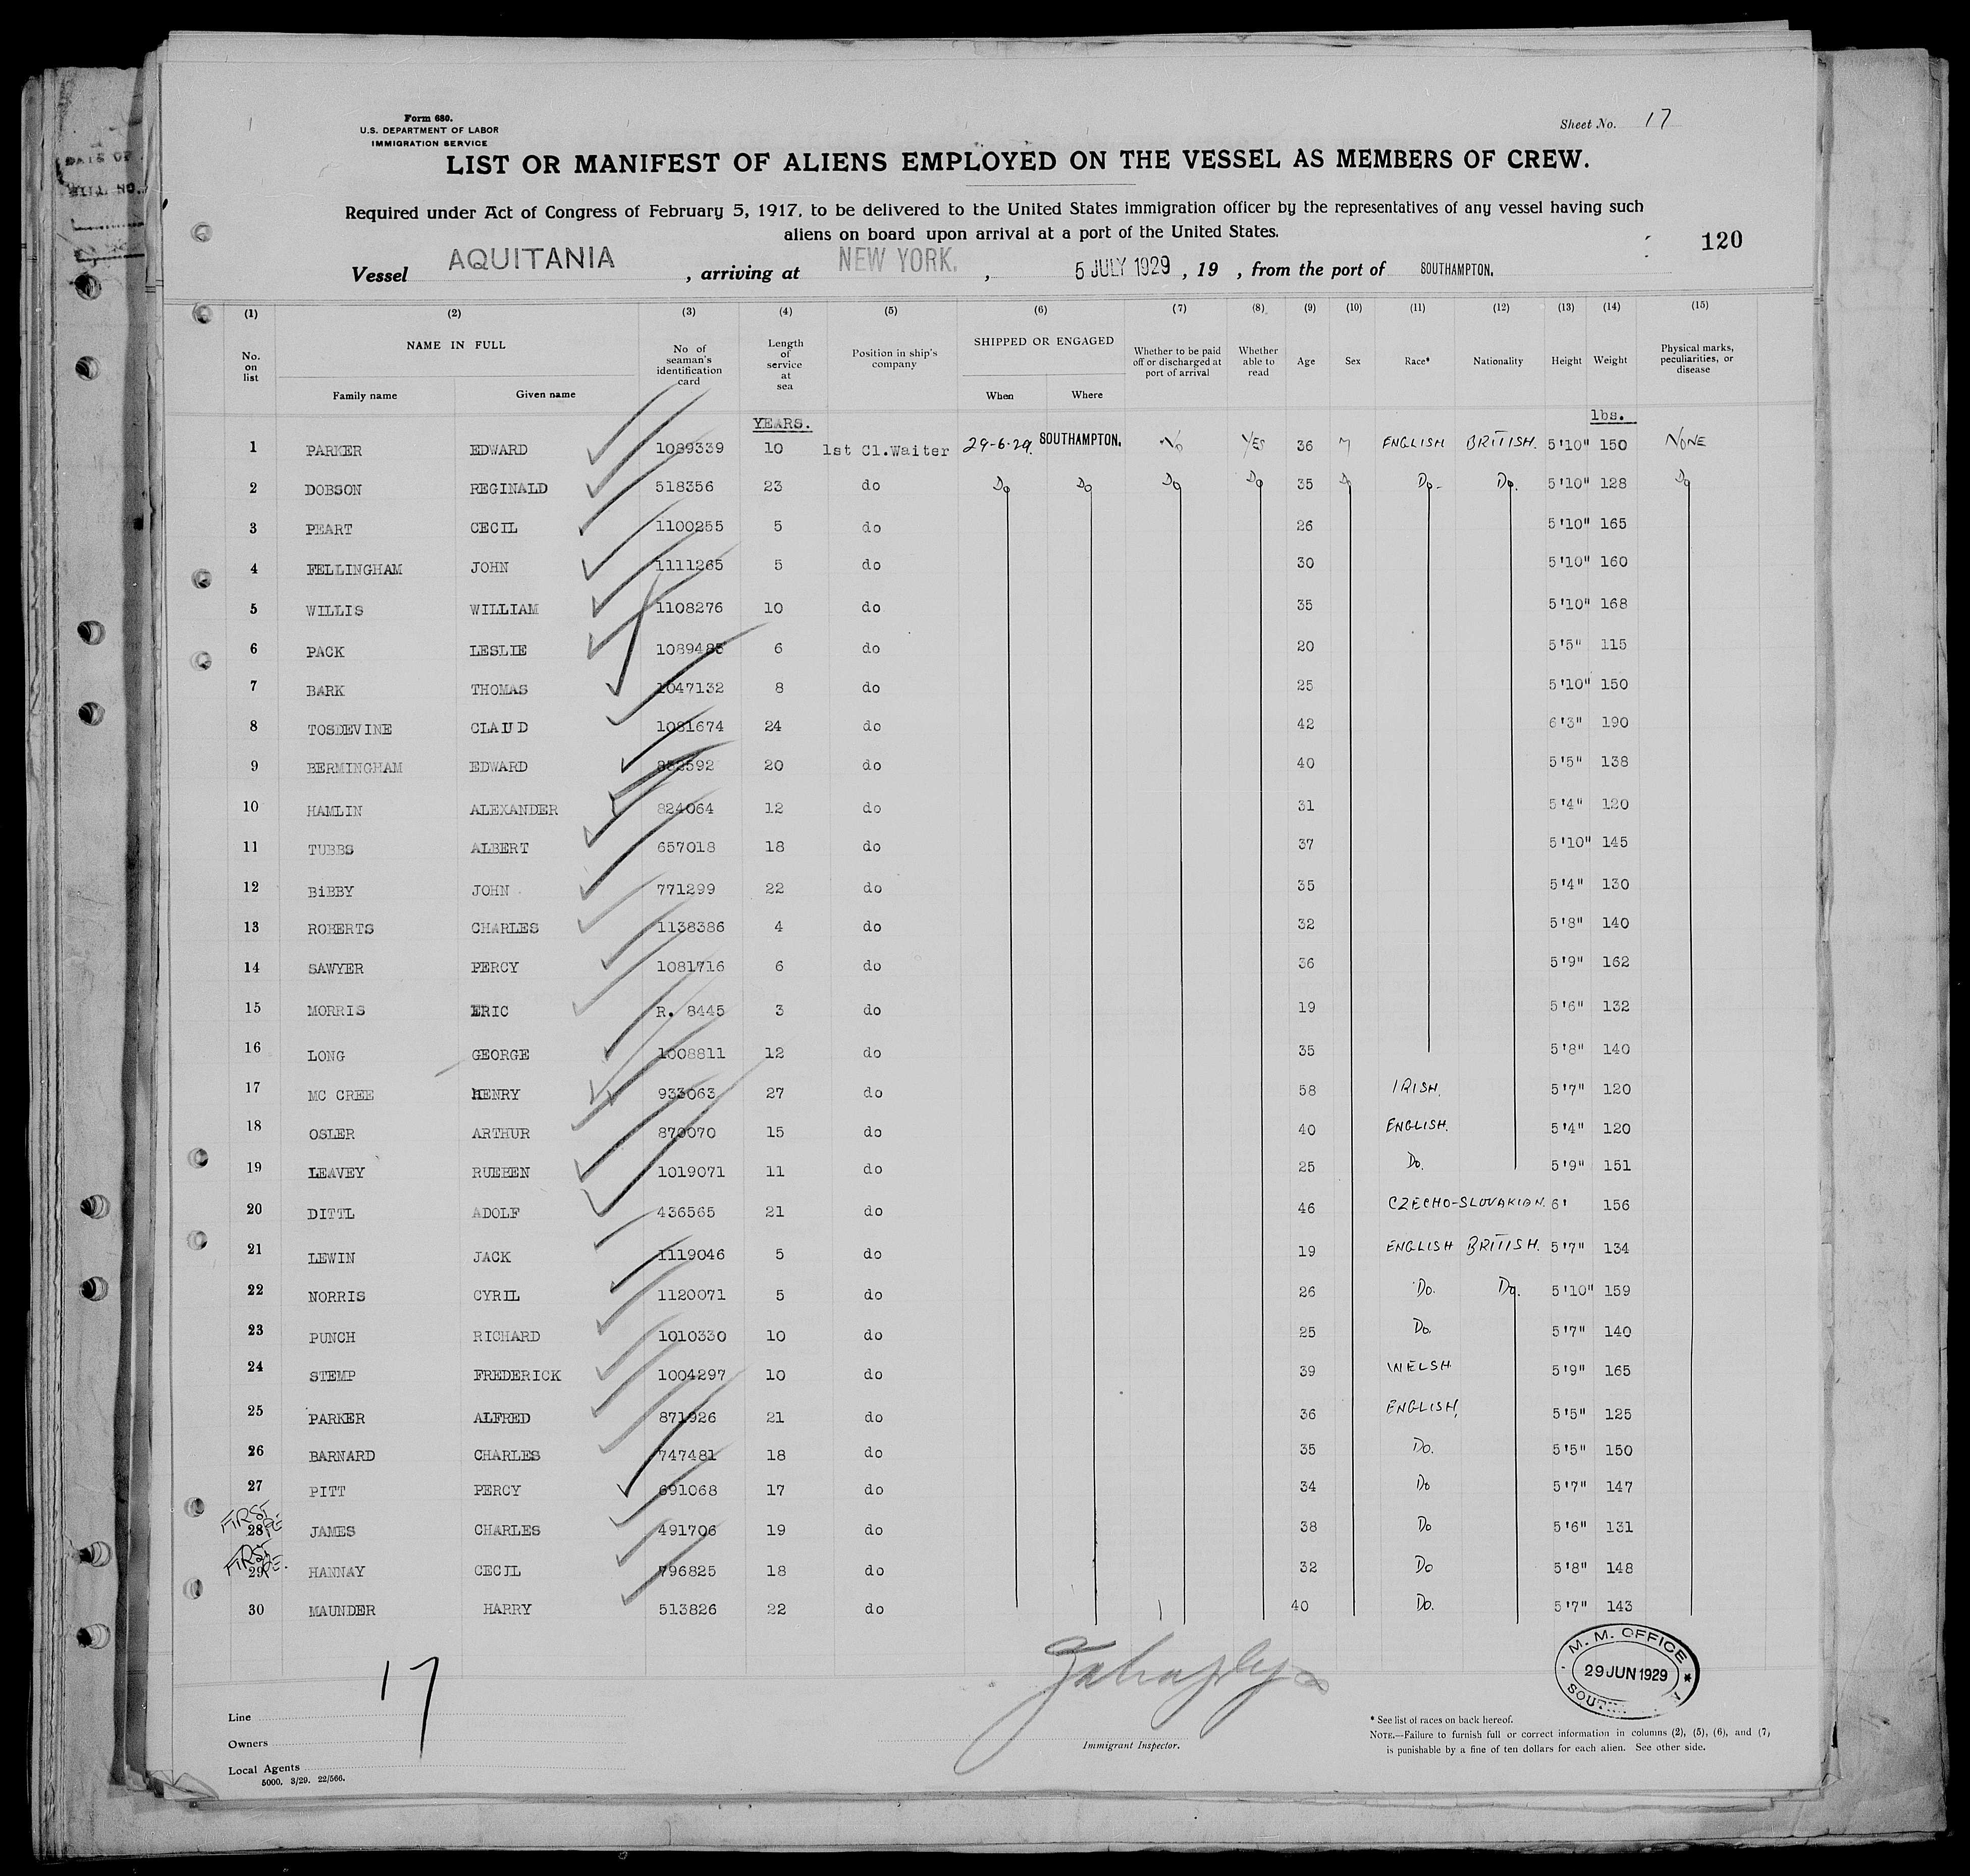 Form 680.
U.S. DEPARTMENT OF LABOR
IMMIGRATION SERVICE
Sheet No. 17
LIST OR MANIFEST OF ALIENS EMPLOYED ON THE VESSEL AS MEMBERS OF CREW.
Required under Act of Congress of February 5, 1917, to be delivered to the United States immigration officer by the representatives of any vessel having such
aliens on board upon arrival at a port of the United States.
120
Vessel AQUITANIA , arriving at NEW YORK. , 5 JULY 1929 , 19 , from the port of SOUTHAMPTON.
(1) (2) (3) (4) (5) (6) (7) (8) (9) (10) (11) (12) (13) (14) (15)
No. on list NAME IN FULL Family name Given name No of seaman's identification card Length of service at sea Position in ship's company SHIPPED OR ENGAGED When Where Whether to be paid off or discharged at port of arrival Whether able to read Age Sex Race* Nationality Height Weight Physical marks, peculiarities, or disease
YEARS. lbs.
1 PARKER EDWARD 1089339 10 1st Cl.Waiter 29-6-29. SOUTHAMPTON. No YES 36 M ENGLISH BRITISH. 5'10" 150 NONE
2 DOBSON REGINALD 518356 23 do Do Do Do Do 35 Do Do. Do. 5'10" 128 Do
3 PEART CECIL 1100255 5 do 26 5'10" 165
4 FELLINGHAM JOHN 1111265 5 do 30 5'10" 160
5 WILLIS WILLIAM 1108276 10 do 35 5'10" 168
6 PACK LESLIE 1089485 6 do 20 5'5" 115
7 BARK THOMAS 1047132 8 do 25 5'10" 150
8 TOSDEVINE CLAUD 1081674 24 do 42 6'3" 190
9 BERMINGHAM EDWARD 20 do 40 5'5" 138
10 HAMLIN ALEXANDER 824064 12 do 31 5'4" 120
11 TUBBS ALBERT 657018 18 do 37 5'10" 145
12 BiBBY JOHN 771299 22 do 35 5'4" 130
13 ROBERTS CHARLES 1138386 4 do 32 5'8" 140
14 SAWYER PERCY 1081716 6 do 36 5'9" 162
15 MORRIS ERIC R. 8445 3 do 19 5'6" 132
16 LONG GEORGE 1008811 12 do 35 5'8" 140
17 MC CREE HENRY 933063 27 do 58 IRISH. 5'7" 120
18 OSLER ARTHUR 870070 15 do 40 ENGLISH. 5'4" 120
19 LEAVEY RUEBEN 1019071 11 do 25 Do. 5'9" 151
20 DITTL ADOLF 436565 21 do 46 CZECHO-SLOVAKIAN. 6' 156
21 LEWIN JACK 1119046 5 do 19 ENGLISH BRITISH. 5'7" 134
22 NORRIS CYRIL 1120071 5 do 26 Do. Do. 5'10" 159
23 PUNCH RICHARD 1010330 10 do 25 Do. 5'7" 140
24 STEMP FREDERICK 1004297 10 do 39 WELSH 5'9" 165
25 PARKER ALFRED 871926 21 do 36 ENGLISH, 5'5" 125
26 BARNARD CHARLES 747481 18 do 35 Do. 5'5" 150
27 PITT PERCY 691068 17 do 34 Do 5'7" 147
FIRST
28 JAMES CHARLES 491706 19 do 38 Do 5'6" 131
FIRST
29 HANNAY CECIL 796825 18 do 32 Do 5'8" 148
30 MAUNDER HARRY 513826 22 do 40 Do. 5'7" 143
17
M. M. OFFICE
29 JUN 1929
Line
Owners
Local Agents
5000. 3/29. 22/566.
Immigrant Inspector.
* See list of races on back hereof.
NOTE.—Failure to furnish full or correct information in columns (2), (5), (6), and (7,
is punishable by a fine of ten dollars for each alien. See other side.